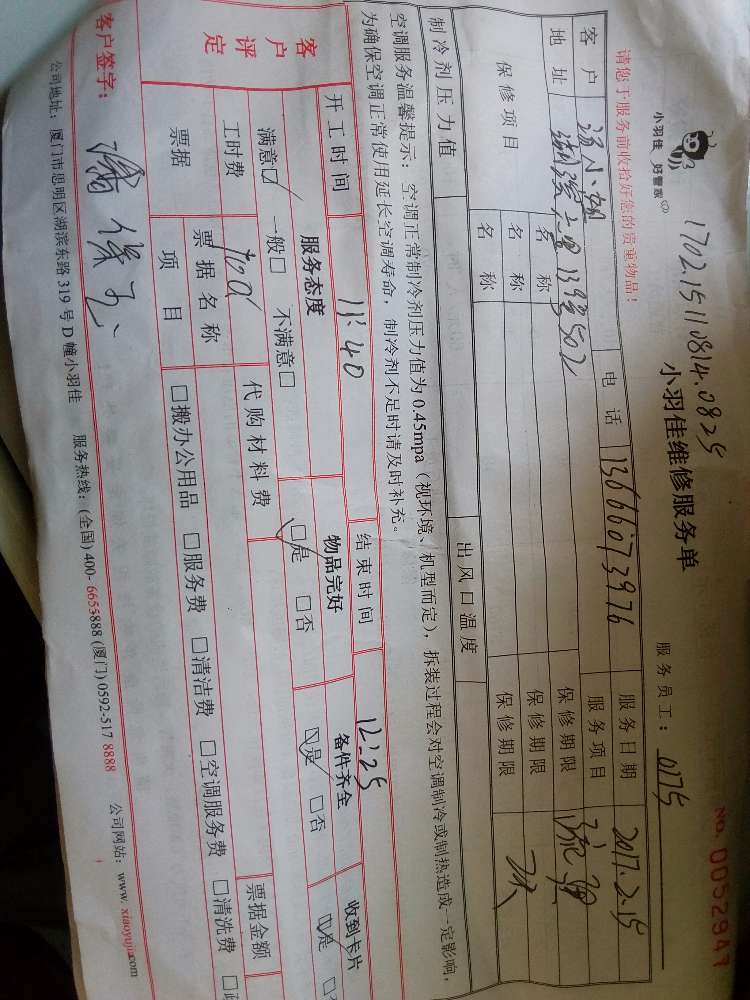 小羽佳 好管家
1702.15110814.0825
小羽佳维修服务单
No. 0052947
请您于服务前收拾好您的贵重物品!
服务员工: 0175
客户 小姐 电话 13666073976 服务日期 2017.2.15
地址 502 服务项目
保修项目 名称 保修期限
名称 保修期限
名称 保修期限
制冷剂压力值 出风口温度
空调服务温馨提示: 空调正常制冷剂压力值为0.45mpa(视环境、机型而定), 拆装过程会对空调制冷或制热造成一定影响,
为确保空调正常使用延长空调寿命, 制冷剂不足时请及时补充。
开工时间 11:40 结束时间 12:25
客户评定 服务态度 物品完好 备件齐全 收到卡片
满意□ 一般□ 不满意□ □是 □否 □是 □否 □是
工时费 代购材料费
票据 票据名称 票据金额
项目 □搬办公用品 □服务费 □清洁费 □空调服务费 □清洗费
客户签字:
公司地址: 厦门市思明区湖滨东路319号D幢小羽佳 服务热线: (全国)400-6655888 (厦门)0592-517 8888 公司网站: www.xiaoyujia.com